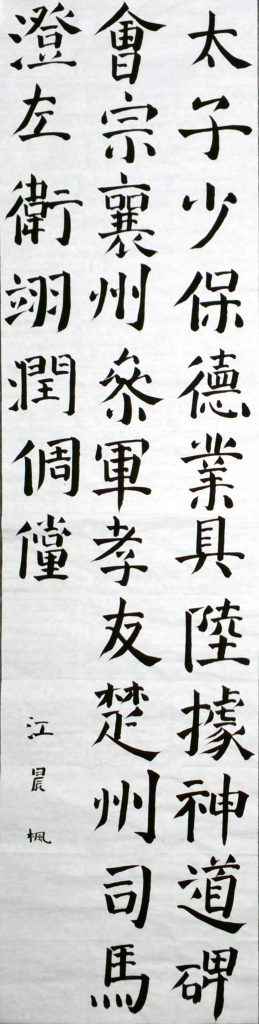 太子少保德業具陸據神道碑
會宗襄州叅軍孝友楚州司馬
澄左衛翊潤倜儻
江晨楓